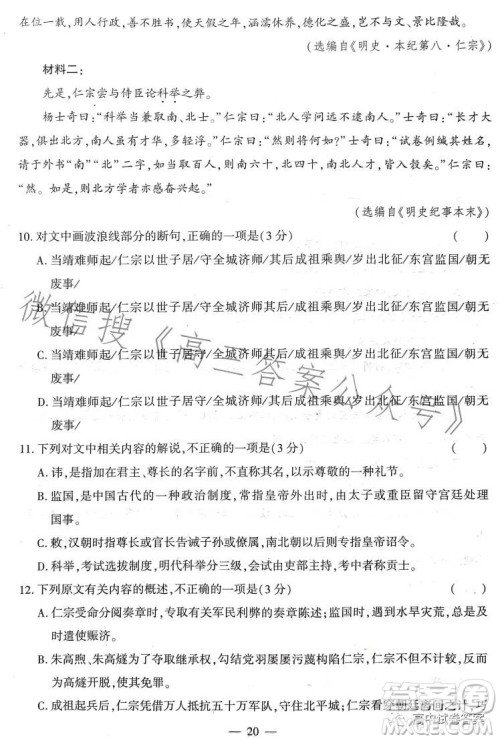 在位一载,用人行政,善不胜书。使天假之年,涵濡休养,德化之盛,岂不与文、景比隆哉。
(选编自《明史·本纪第八·仁宗》)
材料二:
先是,仁宗尝与侍臣论科举之弊。
杨士奇曰:“科举当兼取南、北士。”仁宗曰:“北人学问远不逮南人。”士奇曰:“长才大
器,俱出北方,南人虽有才华,多轻浮。”仁宗曰:“然则将何如?”士奇曰:“试卷例缄其姓名,
请于外书“南”“北”二字,如当取百人,则南六十,北四十,南北人才,皆入彀矣。”仁宗曰:
“然。如是,则北方学者亦感奋兴起。”
(选编自《明史纪事本末》)
10. 对文中画波浪线部分的断句,正确的一项是(3 分) ( )
A. 当靖难师起/仁宗以世子居/守全城济师其后/成祖乘舆/岁出北征/东宫监国/朝无
废事/
B. 当靖难师起/仁宗以世子居/守全城济师/其后成祖乘舆/岁出北征/东宫监国/朝无
废事/
C. 当靖难师起/仁宗以世子居守/全城济师/其后成祖乘舆/岁出北征/东宫监国/朝无
废事/
D. 当靖难师起/仁宗以世子居守/全城济师其后/成祖乘舆/岁出北征/东宫监国/朝无
废事/
11. 下列对文中相关内容的解说,不正确的一项是(3 分) ( )
A. 讳,是指在君主、尊长的名字前,不直称其名,以表尊重。
B. 监国,是中国古代的一种政治制度,通常是指皇帝外出时,太子或重臣留守宫廷处理
国事。
C. 敕,汉朝时指尊长或官长告诫子孙或僚属,南北朝以后专指皇帝诏书。
D. 科举,考试选拔官员的制度,明代科举考试分三级进行,考中者即是进士。
12. 下列原文有关内容的概述,不正确的一项是(3 分) ( )
A. 仁宗受命分阅奏章时,专取有关军民利弊的奏章陈述;监国时,遇上水旱灾荒,总是立
即派使赈济。
B. 朱高煦、朱高燧与宦官勾结,
C. 仁宗凭借万人抵抗李景隆的五十万军队,守住北平城;
— 20 —
微信搜《高三答案公众号》
高中试卷答案